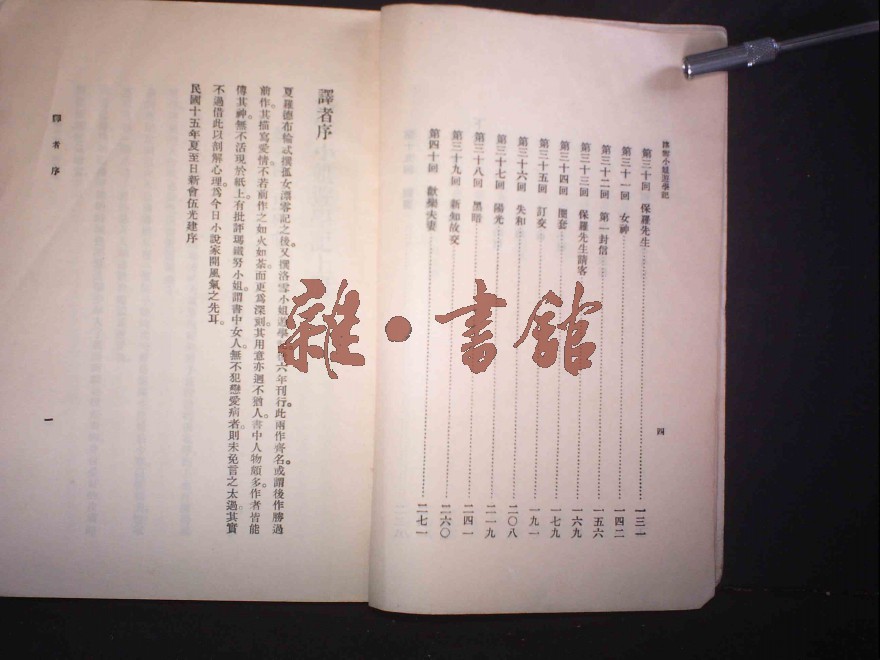 洛雪小姐遊學記
第三十回　保羅先生……一三一
第三十一回　女神……一四二
第三十二回　第一封信……一五六
第三十三回　保羅先生請客……一六九
第三十四回　圈套……一七九
第三十五回　訂交……一九一
第三十六回　失和……二〇八
第三十七回　陽光……二一九
第三十八回　黑暗……二四一
第三十九回　新知故交……二六〇
第四十回　歡樂夫妻……二七一
四
譯者序
夏羅德布倫忒撰孤女漂零記之後。又撰洛雪小姐遊學 六年刊行。此兩作齊名。或謂後作勝過
前作。其描寫愛情。不若前作之如火如荼。而更為深刻。其用意亦迥不猶人。書中人物頗多。作者皆能
傳其神。無不活現於紙上。有批評瑪鐵努小姐。謂書中女人。無不犯戀愛病者。則未免言之太過。其實
不過借此以剖解心理。為今日小說家開風氣之先耳。
民國十五年夏至日新會伍光建序
譯者序
一
雜·書館